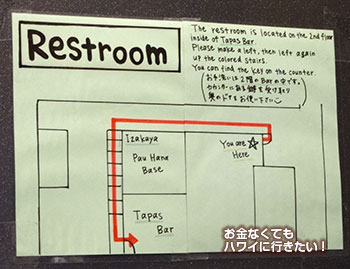 Restroom
The restroom is located on the 2nd floor
inside of Tapas Bar.
Please make a left, then left again
up the colored stairs.
You can find the key on the counter.
お手洗いは2階のBarの中です。
カウンターにある鍵を受け取り
奥のドアをお使い下さい
Izakaya
Pau Hana
Base
You are
Here
Tapas
Bar
お金なくても
ハワイに行きたい！